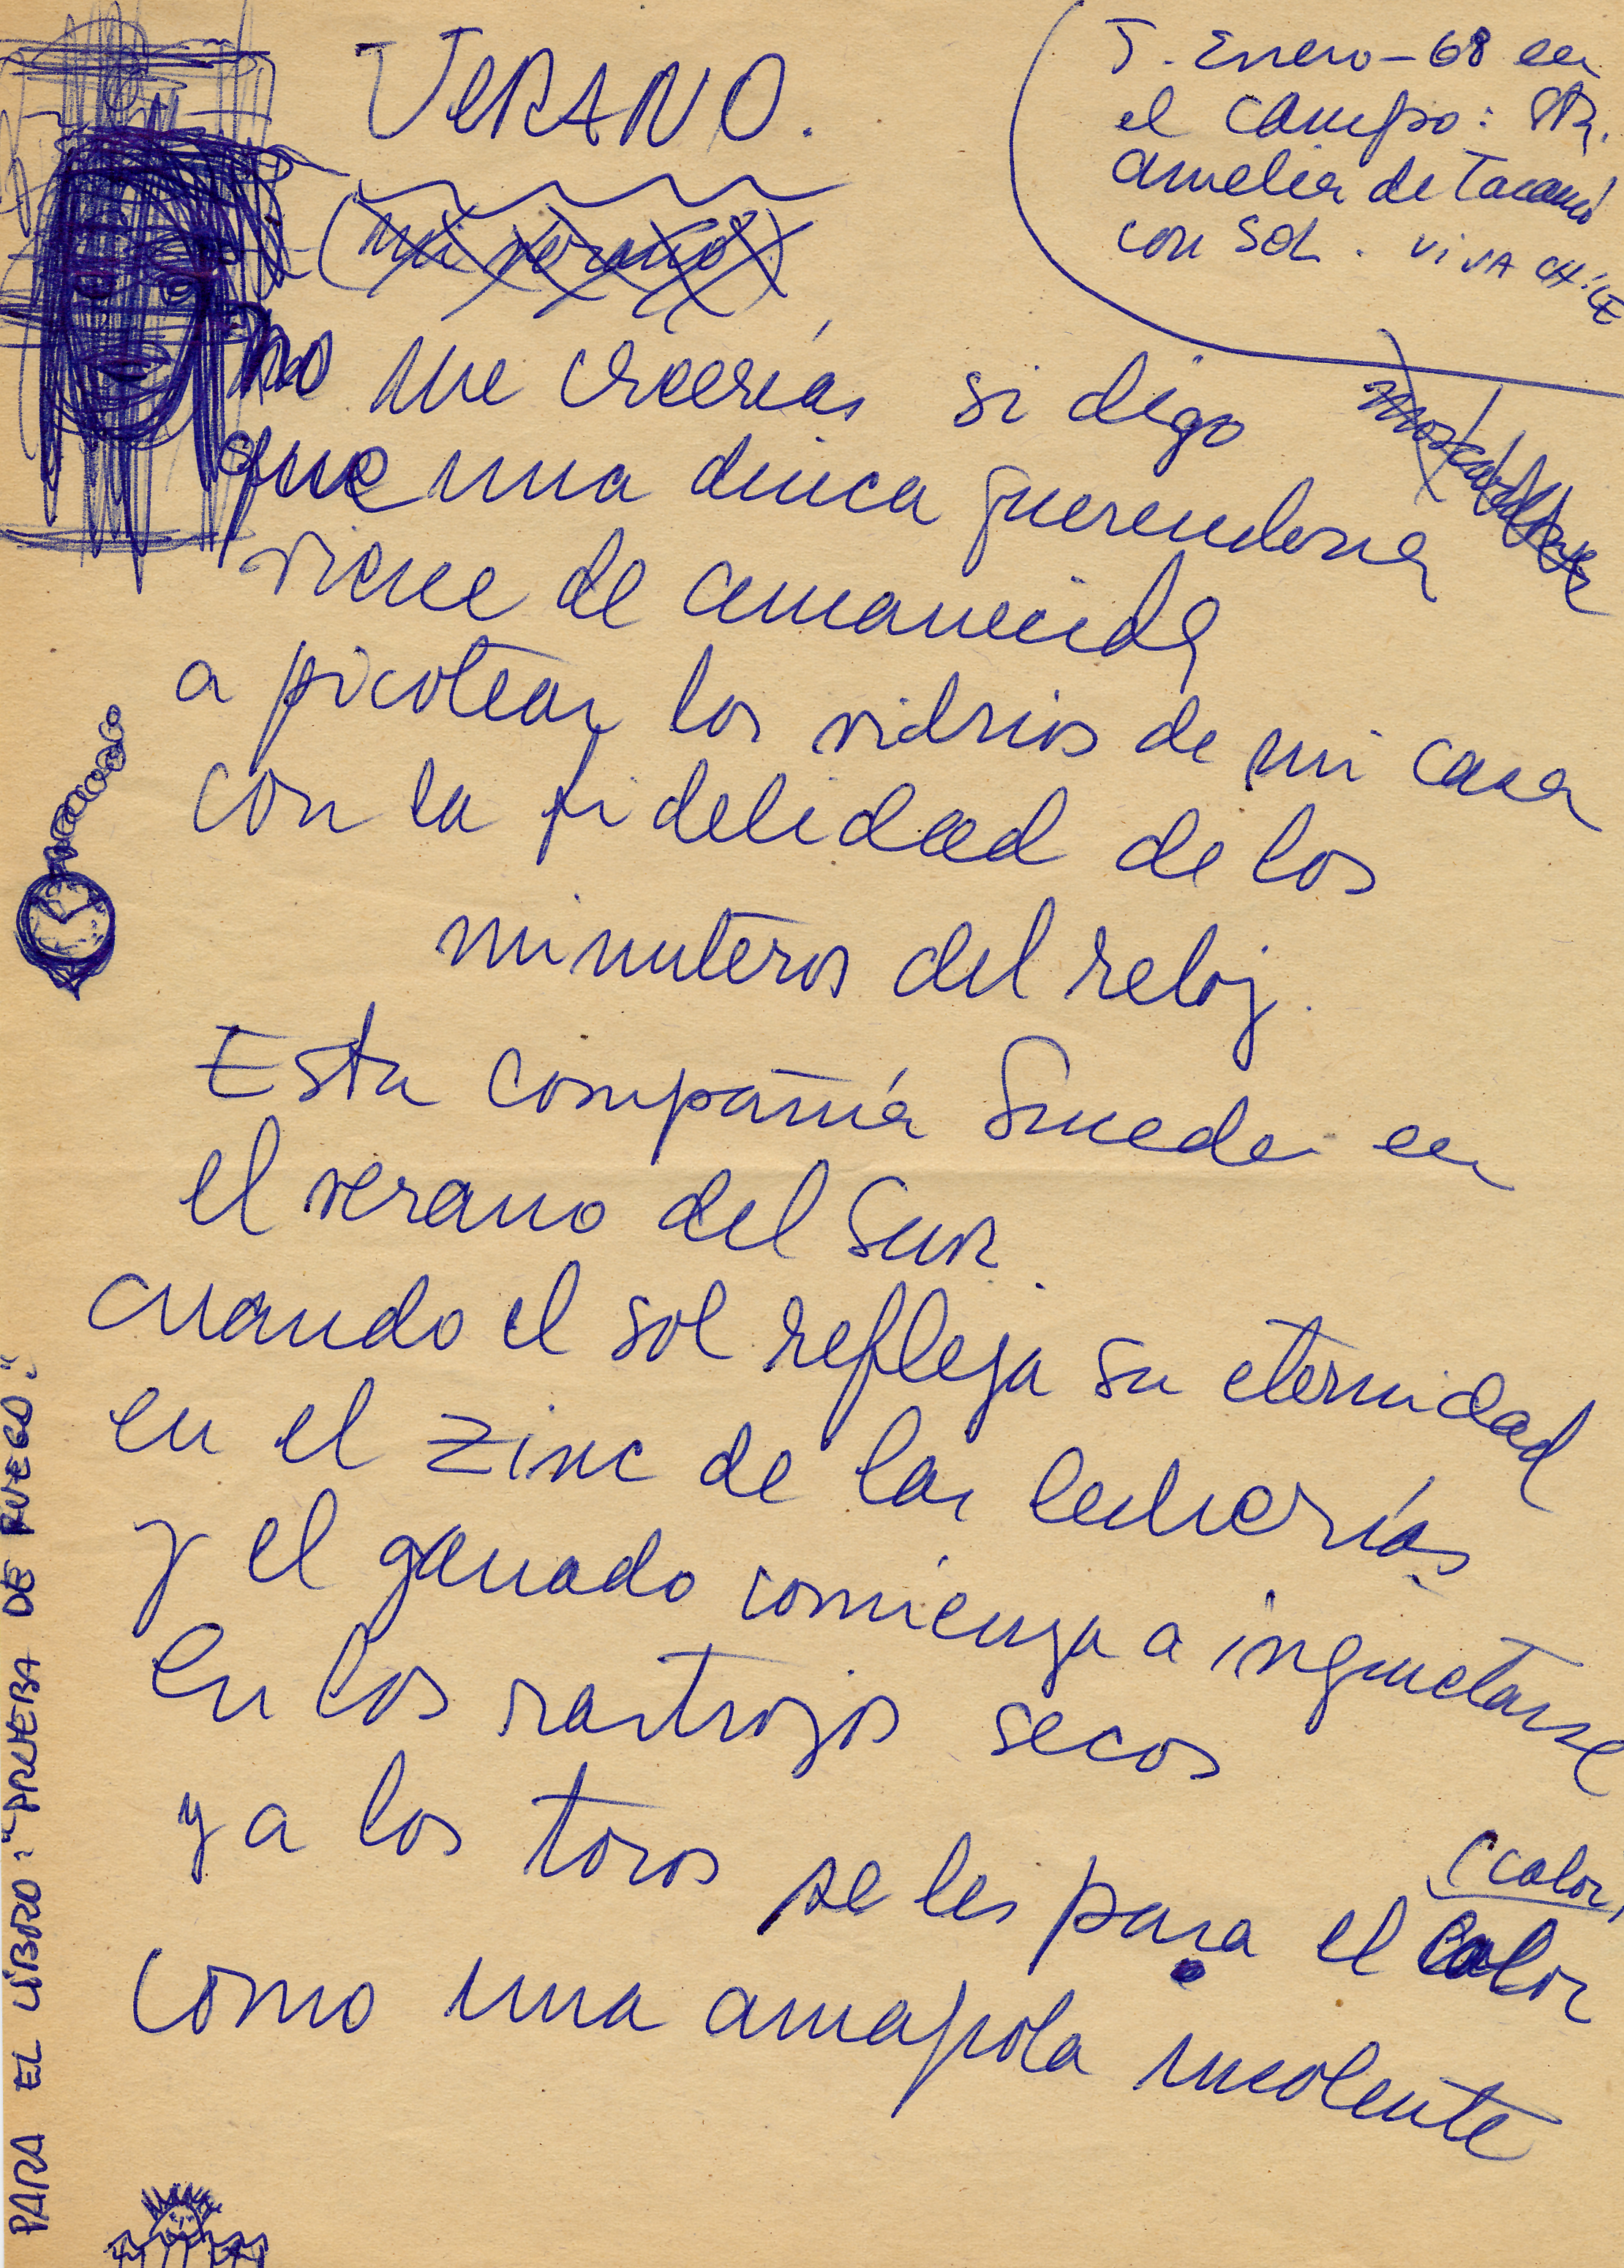 VERANO.
5. Enero-68 en
el campo: Sta.
Amelia de Tacamó
con Sol. VIVA CHILE
(mi verano)
no me creerías si digo
que una diuca querendona
viene de amanecida
a picotear los vidrios de mi casa
con la fidelidad de los
minuteros del reloj.
Esta compañía Sucede en
el verano del Sur.
cuando el sol refleja su eternidad
en el zinc de las lecherías
y el ganado comienza a inquietarse
en los rastrojos secos
y a los toros se les para el calor
(calor)
como una amapola insolente
PARA EL LIBRO: "PRUEBA DE RUEGO".